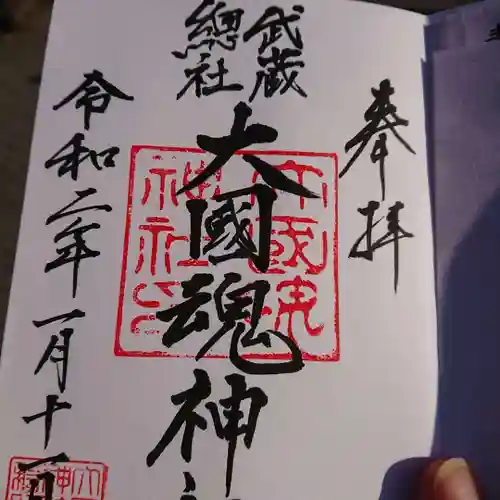 奉拝
武蔵
總社
大國魂神社
令和二年一月十一日
大國魂
神社印